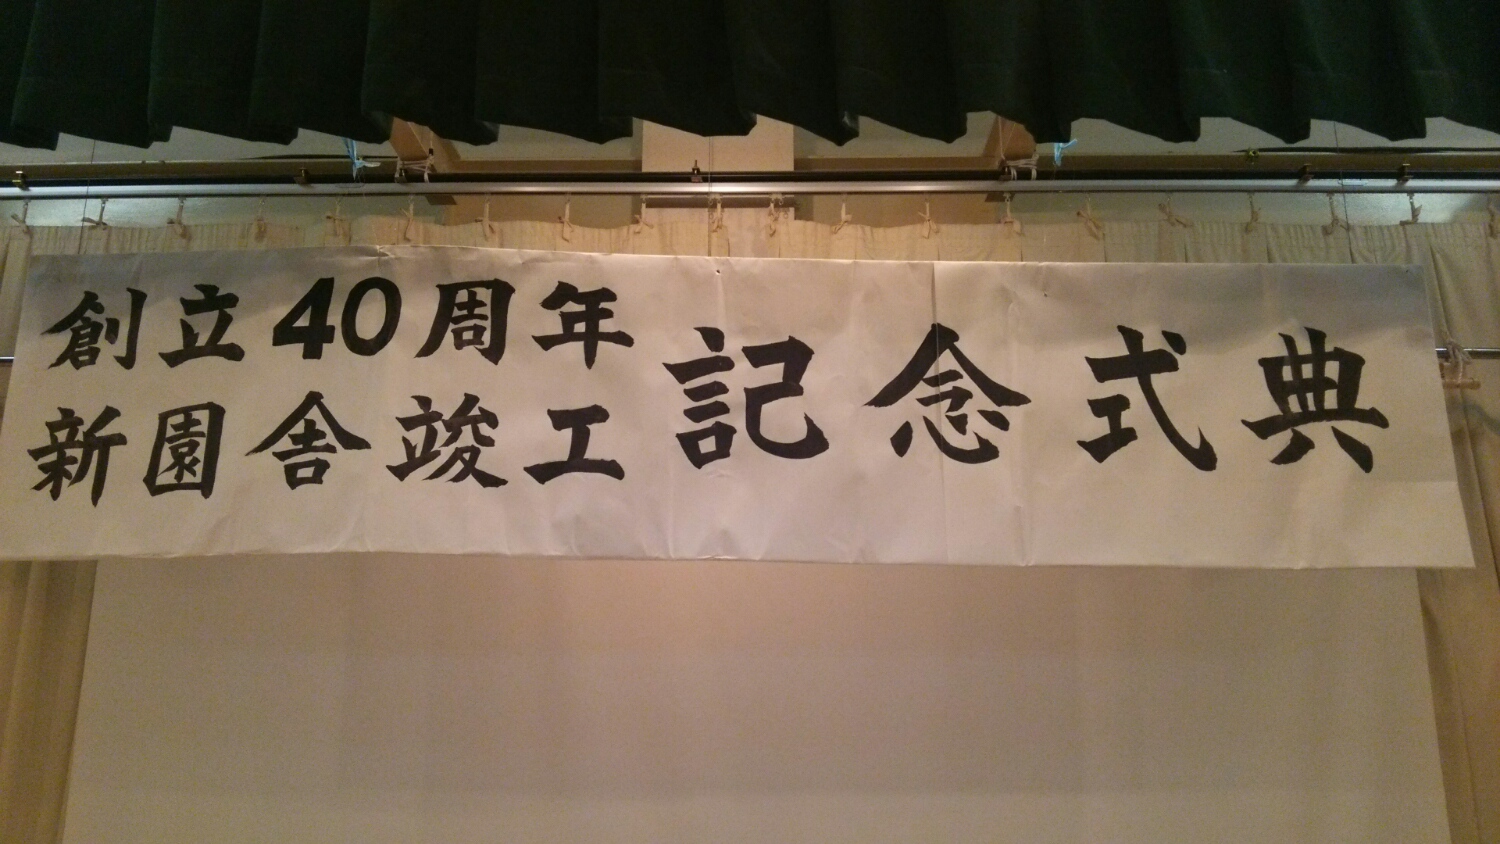 創立40周年
新園舎竣工
記念式典